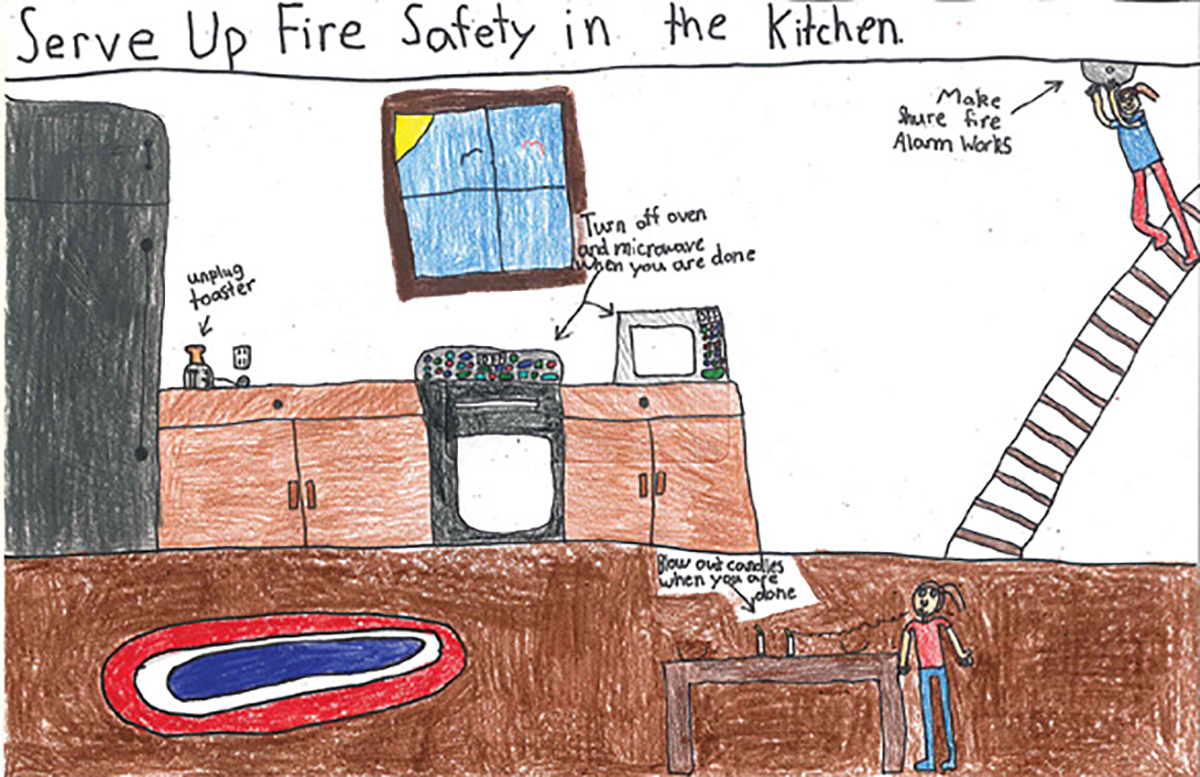 Serve Up Fire Safety in the Kitchen.
Make
shure fire
Alarm Works
Turn off oven
and microwave
when you are done
unplug
toaster
Blow out candles
when you are
done